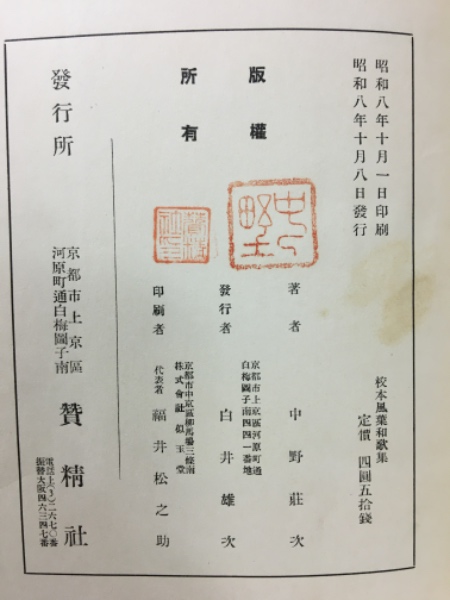 昭和八年十月一日印刷
昭和八年十月八日發行
校本風葉和歌集
定價 四圓五拾錢
版權
所有
中野
著者 中野莊次
京都市上京區河原町通
白梅圖子南四四一番地
發行者 白井雄次
京都市中京區柳馬場三條南
株式會社似玉堂
印刷者 代表者 福井松之助
發行所
京都市上京區
河原町通白梅圖子南
贊精社
電話上(3)二六七〇番
振替大阪四六三四七番